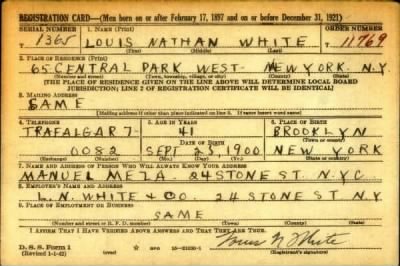 REGISTRATION CARD—(Men born on or after February 17, 1897 and on or before December 31, 1921)
SERIAL NUMBER 1. NAME (Print) ORDER NUMBER
T 1365 LOUIS NATHAN WHITE T 11769
(First) (Middle) (Last)
2. PLACE OF RESIDENCE (Print)
65 CENTRAL PARK WEST - NEW YORK. N.Y.
(Number and street) (Town, township, village, or city) (County) (State)
[THE PLACE OF RESIDENCE GIVEN ON THE LINE ABOVE WILL DETERMINE LOCAL BOARD
JURISDICTION; LINE 2 OF REGISTRATION CERTIFICATE WILL BE IDENTICAL]
3. MAILING ADDRESS
SAME
[Mailing address if other than place indicated on line 2. If same insert word same]
4. TELEPHONE 5. AGE IN YEARS 6. PLACE OF BIRTH
TRAFALGAR 7- 41 BROOKLYN
DATE OF BIRTH (Town or county)
0082 SEPT 23, 1900 NEW YORK
(Exchange) (Number) (Mo.) (Day) (Yr.) (State or country)
7. NAME AND ADDRESS OF PERSON WHO WILL ALWAYS KNOW YOUR ADDRESS
MANUEL 24 STONE ST. N.Y.C.
8. EMPLOYER'S NAME AND ADDRESS
L. N. WHITE & CO. 24 STONE ST. N.Y.
9. PLACE OF EMPLOYMENT OR BUSINESS
SAME
(Number and street or R. F. D. number) (Town) (County) (State)
I AFFIRM THAT I HAVE VERIFIED ABOVE ANSWERS AND THAT THEY ARE TRUE.
D. S. S. Form 1
(Revised 1-1-42) GPO Louis N White
(Registrant's signature)